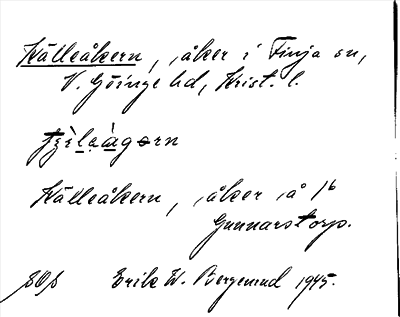 Källeåkern, åker i Finja sn,
V. Göinge hd, Krist. l.
Källeåkern, åker å 1⁶
Gunnarstorp.
Erik W. Bergemud 1945.